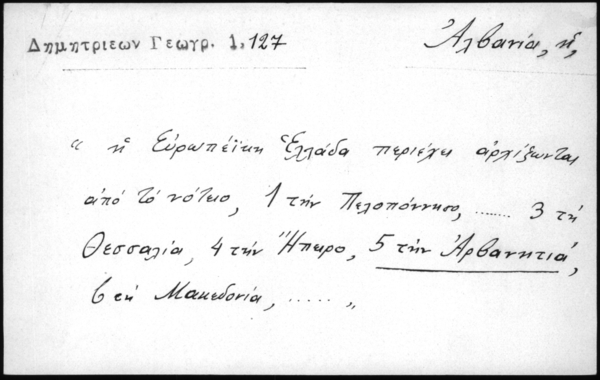 Δημητριεων Γεωγρ. 1,127
Ἀλβανία, ἡ,
" ἡ Εὐρωπέϊκη Ἑλλάδα περιέχει ἀρχίζωντας
ἀπό τό νότειο, 1 τήν Πελοπόννησο, ....... 3 τη
Θεσσαλία, 4 τήν Ἤπειρο, 5 τήν Ἀρβανητιά,
6 τη Μακεδονία, ..... "